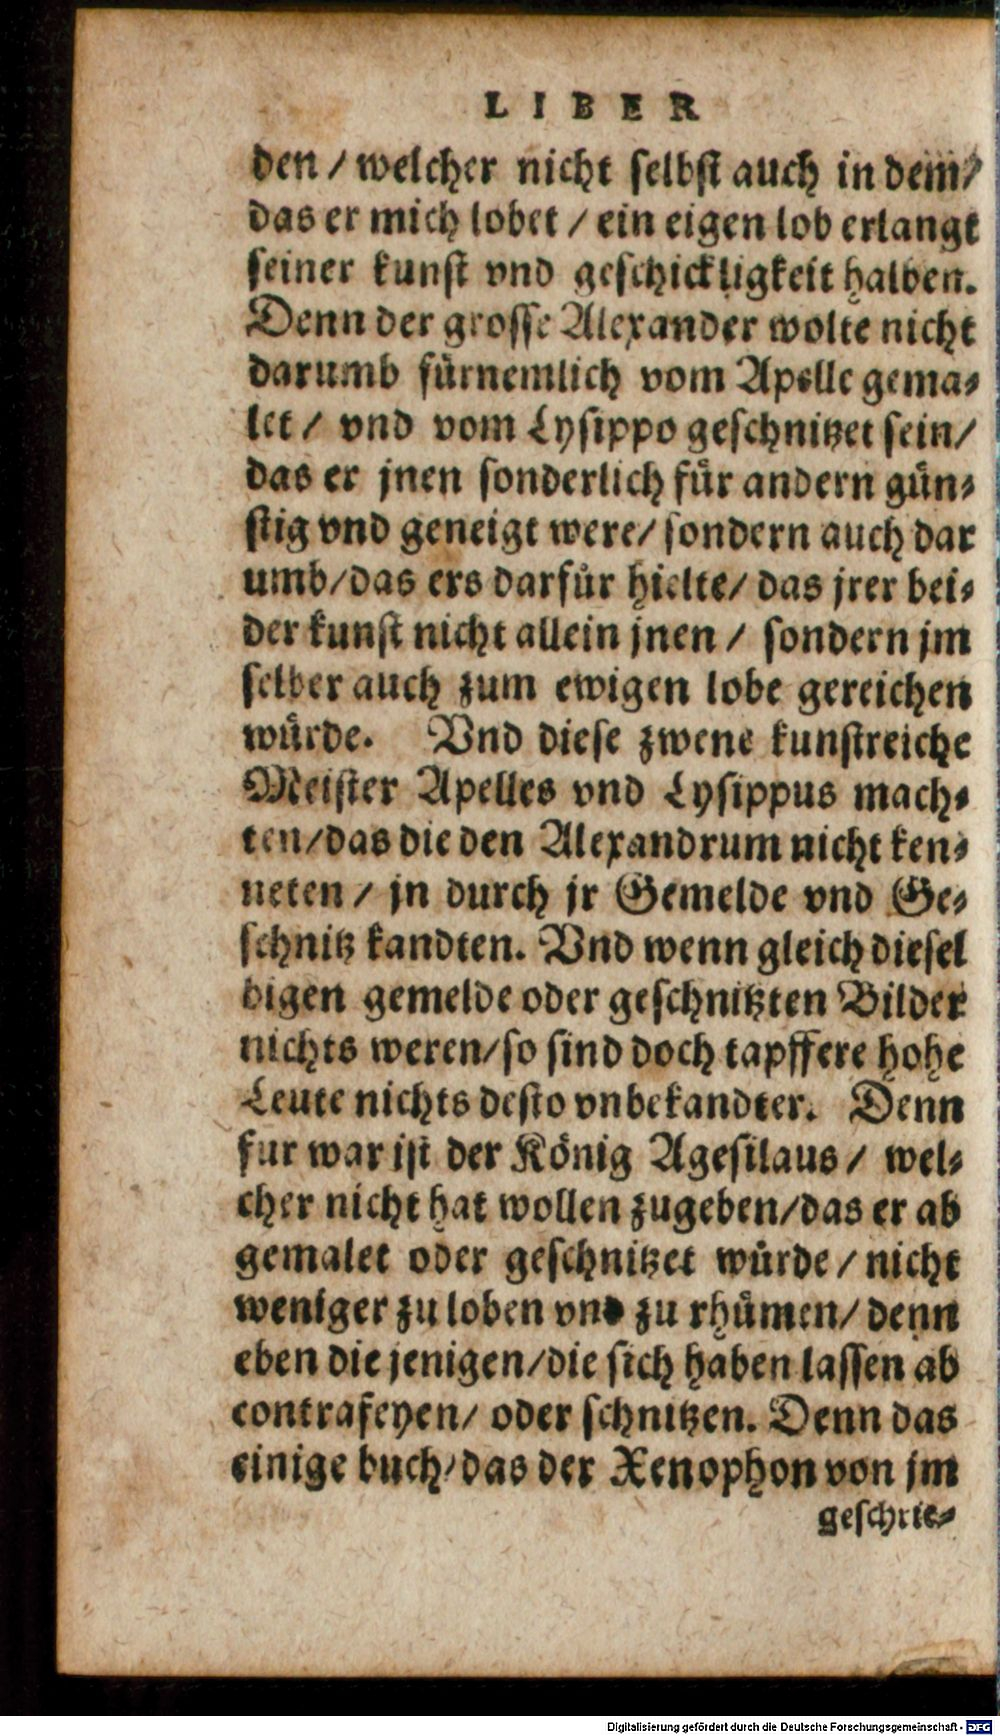 LIBER
den / welcher nicht selbst auch in dem/
das er mich lobet / ein eigen lob erlangt
seiner kunst vnd geschickligkeit halben.
Denn der grosse Alexander wolte nicht
darumb fürnemlich vom Apelle gema-
let / vnd vom Lysippo geschnitzet sein/
das er jnen sonderlich für andern gün-
stig vnd geneigt were/ sondern auch dar
umb/das ers darfür hielte/ das jrer bei-
der kunst nicht allein jnen / sondern jm
selber auch zum ewigen lobe gereichen
würde. Vnd diese zwene kunstreiche
Meister Apelles vnd Lysippus mach-
ten/das die den Alexandrum nicht ken-
neten / jn durch jr Gemelde vnd Ge-
schnitz kandten. Vnd wenn gleich diesel
bigen gemelde oder geschnitzten Bilder
nichts weren/so sind doch tapffere hohe
Leute nichts desto vnbekandter. Denn
fur war ist der König Agesilaus / wel-
cher nicht hat wollen zugeben/das er ab
gemalet oder geschnitzet würde / nicht
weniger zu loben vnd zu rhümen/ denn
eben die jenigen/die sich haben lassen ab
contrafeyen/ oder schnitzen. Denn das
einige buch/das der Xenophon von jm
geschrie-
Digitalisierung gefördert durch die Deutsche Forschungsgemeinschaft - DFG